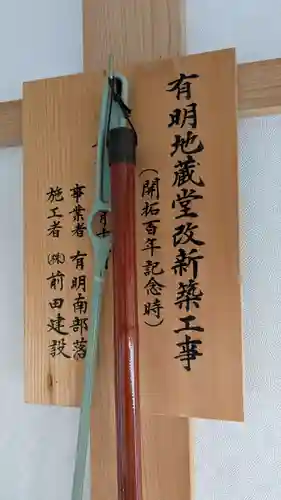 有明地蔵堂改新築工事
（開拓百年記念時）
事業者 有明南部落
施工者 ㈱前田建設